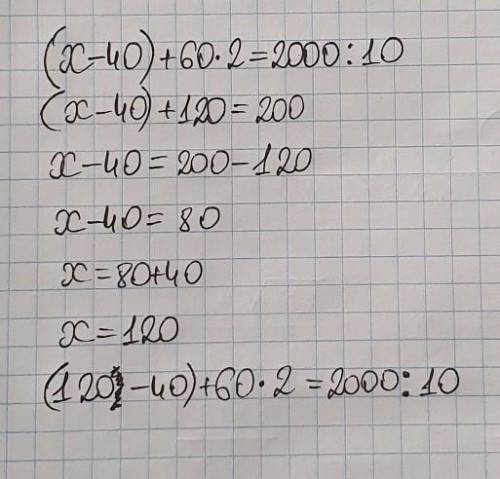 (x-40)+60·2=2000:10
(x-40)+120=200
x-40=200-120
x-40=80
x=80+40
x=120
(120-40)+60·2=2000:10